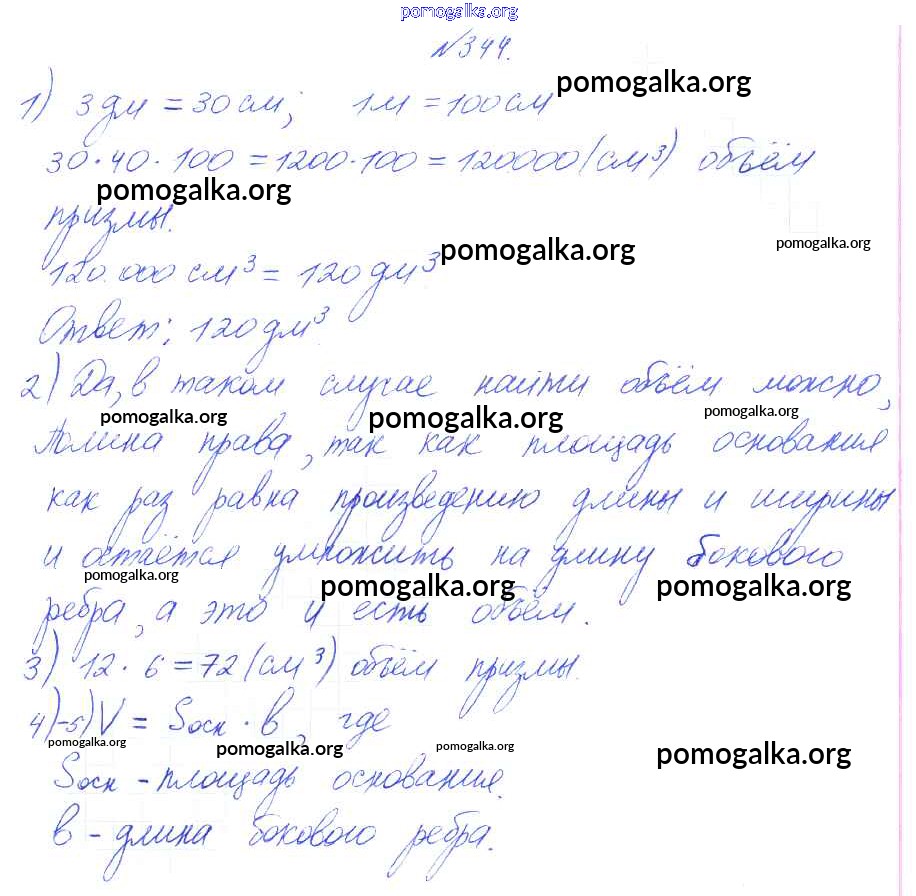 pomogalka.org
№344.
1) 3 дм = 30 см; 1 м = 100 см pomogalka.org
30·40·100 = 1200·100 = 120000 (см³) объём
pomogalka.org
призмы.
pomogalka.org pomogalka.org
120.000 см³ = 120 дм³
Ответ: 120 дм³
2) Да, в таком случае найти объём можно,
pomogalka.org pomogalka.org pomogalka.org
права, так как площадь основания
как раз равна произведению длины и ширины
и остаётся умножить на длину бокового
pomogalka.org pomogalka.org pomogalka.org
ребра, а это и есть объём.
3) 12·6 = 72 (см³) объём призмы.
4)-5) V = Sосн · в, где
pomogalka.org pomogalka.org pomogalka.org pomogalka.org
Sосн - площадь основания.
в - длина бокового ребра.